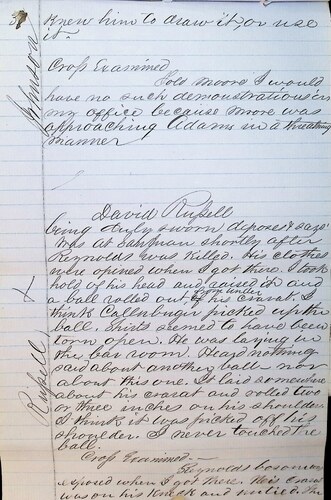 knew him to draw it, or use
it
Johnson
Cross Examined
Told Moore I would
have no such demonstrations in
my office because Moore was
approaching Adams in a threatning
manner
David Russell
being duly sworn deposes & says
was at Eastman shortly after
Reynolds was killed. His clothes
were opened when I got there. I took
hold of his head and raised it and
a ball rolled out from under his cravat. I
think Callenburger picked up the
ball. Shirts seemed to have been
torn open. He was laying in
the bar room. Heard nothing
said about another ball nor
about this one. It laid somewhere
about his cravat and rolled two
or three inches on his shoulder
I think it was picked off his
shoulder. I never touched the
ball.
Russell X
Cross Examined
Reynolds bosom was
exposed when I got there. his cravat
was on his neck and